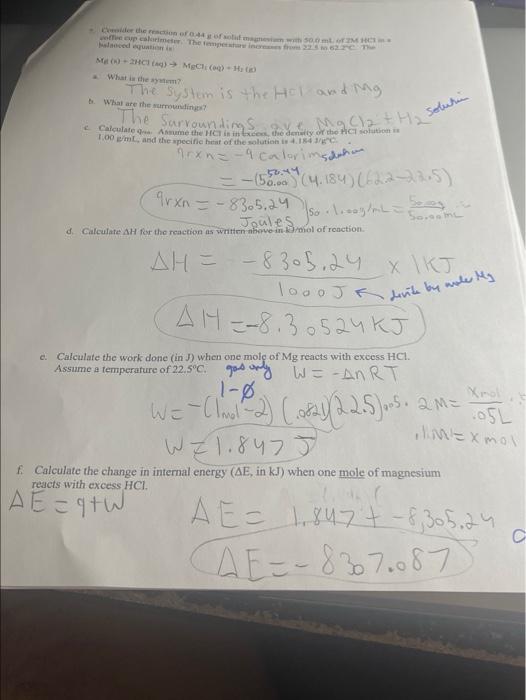 7. Consider the reaction of 0.44 g of solid magnesium with 50.0 mL of 2M HCl in a
coffee cup calorimeter. The temperature increases from 22.5 to 62.2°C. The
balanced equation is:
Mg (s) + 2HCl (aq) → MgCl₂ (aq) + H₂ (g)
a. What is the system?
The System is the HCl and Mg
b. What are the surroundings?
The Surroundings are MgCl2 + H2 solution
c. Calculate q Assume the HCl is in excess, the density of the HCl solution is
1.00 g/mL, and the specific heat of the solution is 4.184 J/g°C.
qrxn = -q calorim solution
50.44
= -(50.00)(4.184)(62.2-22.5)
qrxn = -8305.24
Joules
50 · 1.00g/mL = 50.00g
50.00mL
d. Calculate ΔH for the reaction as written above in kJ/mol of reaction.
ΔH = -8305.24 x 1KJ
1000J ← devide by moles Mg
ΔH = -8.30524 KJ
e. Calculate the work done (in J) when one mole of Mg reacts with excess HCl.
Assume a temperature of 22.5°C. gas only W = -ΔnRT
1-0
W = -(1mol-2)(.0821)(22.5) 2M = Xmol
.05L
.1M = x mol
W = 1.847 J
f. Calculate the change in internal energy (ΔE, in kJ) when one mole of magnesium
reacts with excess HCl.
ΔE = q+w
ΔE = 1.847 + -8,305.24
ΔE = -8307.087